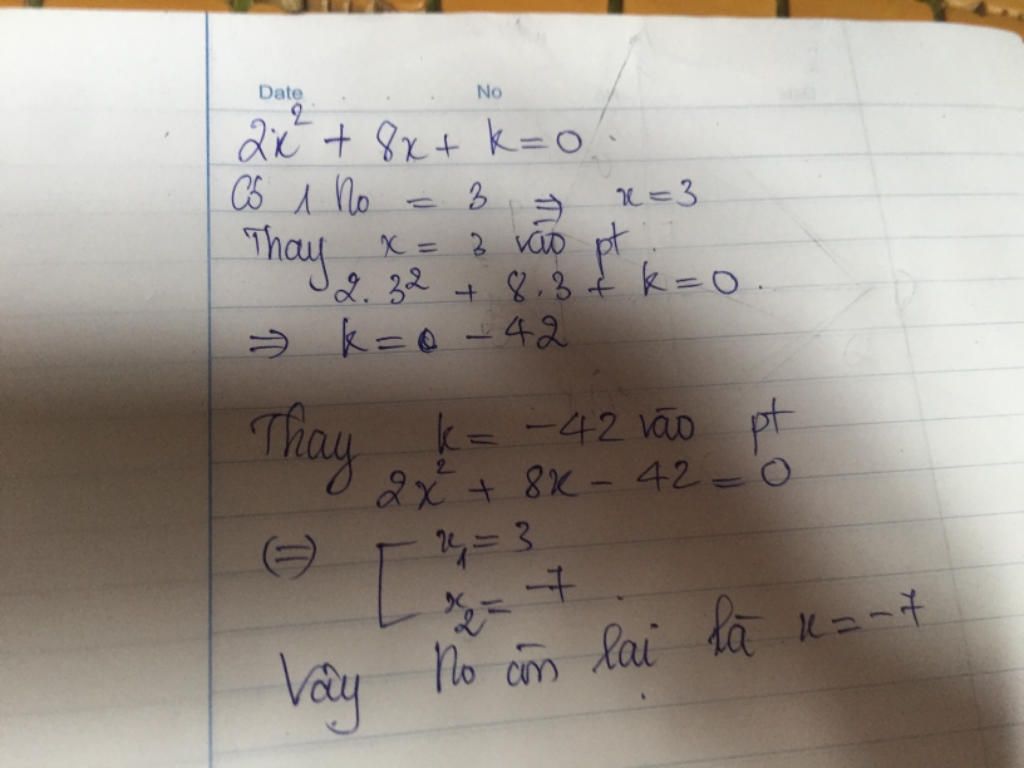 Date No
2x² + 8x + k = 0
Có 1 No = 3 ⇒ x = 3
Thay x = 3 vào pt
2.3² + 8.3 + k = 0.
⇒ k = - 42
Thay k = -42 vào pt
2x² + 8x - 42 = 0
(=) [ x₁ = 3
x₂ = -7
Vậy No còn lại là x = -7